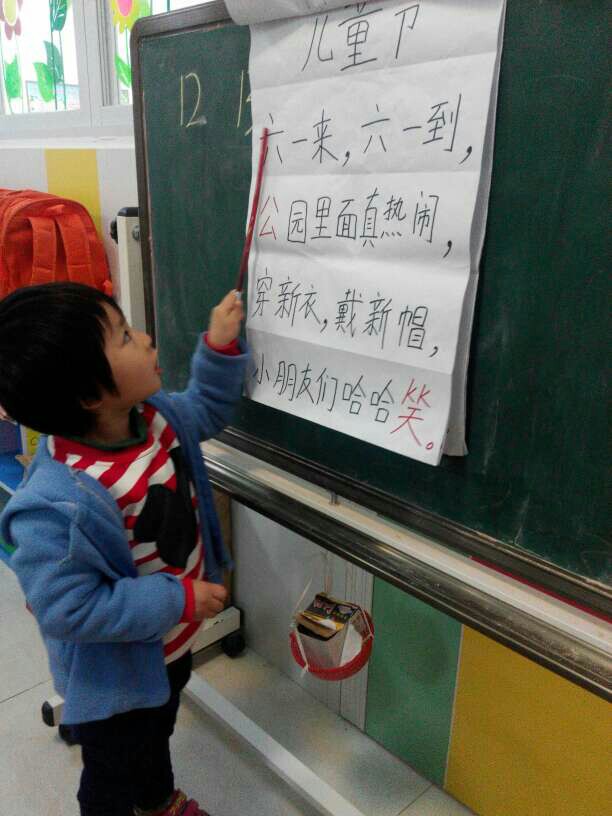 儿童节
12
六一来，六一到，
公园里面真热闹，
穿新衣，戴新帽，
小朋友们哈哈笑。